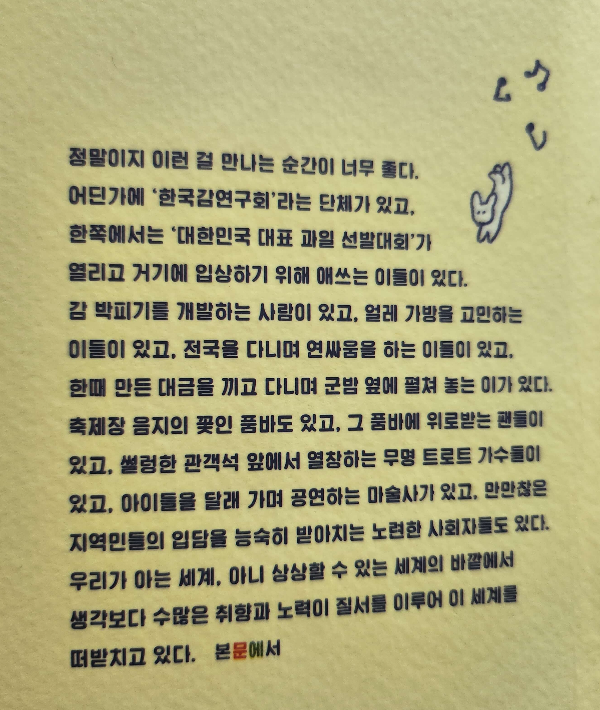 정말이지 이런 걸 만나는 순간이 너무 좋다.
어딘가에 ‘한국감연구회’라는 단체가 있고,
한쪽에서는 ‘대한민국 대표 과일 선발대회’가
열리고 거기에 입상하기 위해 애쓰는 이들이 있다.
감 박피기를 개발하는 사람이 있고, 얼레 가방을 고민하는
이들이 있고, 전국을 다니며 연싸움을 하는 이들이 있고,
한때 만든 대금을 끼고 다니며 군밤 옆에 펼쳐 놓는 이가 있다.
축제장 음지의 꽃인 품바도 있고, 그 품바에 위로받는 팬들이
있고, 썰렁한 관객석 앞에서 열창하는 무명 트로트 가수들이
있고, 아이들을 달래 가며 공연하는 마술사가 있고, 만만찮은
지역민들의 입담을 능숙히 받아치는 노련한 사회자들도 있다.
우리가 아는 세계, 아니 상상할 수 있는 세계의 바깥에서
생각보다 수많은 취향과 노력이 질서를 이루어 이 세계를
떠받치고 있다. 본문에서